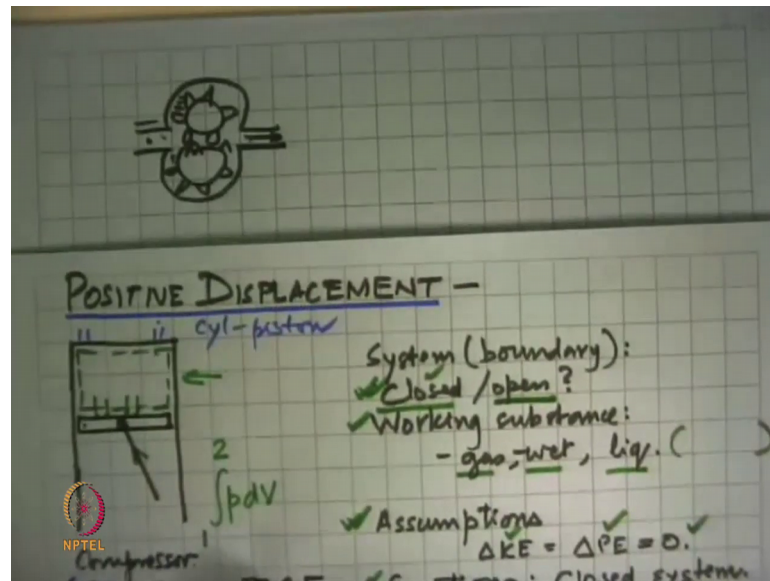 POSITIVE DISPLACEMENT —
cyl-piston
System (boundary):
✓Closed / open?
✓Working substance:
- gas, -wet, liq. ( )
2
∫pdV
1
✓Assumptions
ΔKE = ΔPE = 0.
Compressor
: Closed system
NPTEL